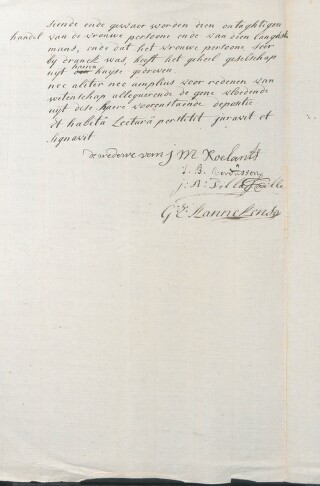 siende ende gewaer worden den ontughtigen
handel van de vrouwe persoone ende van dien langhsten
mans, ende dat het vrouwe persoone seer
by dranck was, heeft het geheel geselschap
uyt haeren huyse gedreven.
nec aliter nec amplius voor redenen van
wetenschap allegerende de gene vloeiende
uyt dese haere voorenstaende depositie
et habitâ Lecturâ perstitit juravit et
signavit
de wedewe van J M Roelants
J. B.
J: B:
G: E: Hannekens